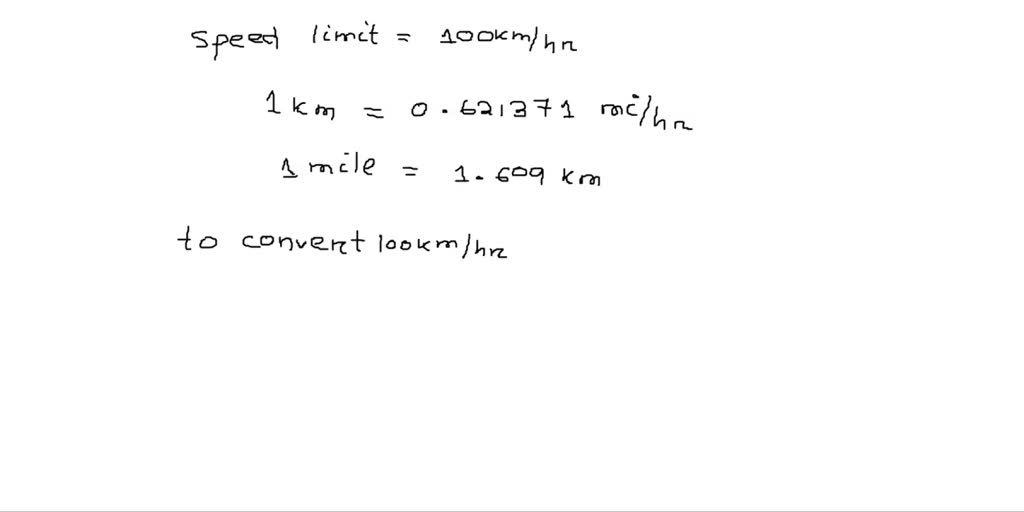 speed limit = 100km/hr
1 km = 0.621371 mi/hr
1 mile = 1.609 km
to convert 100km/hr